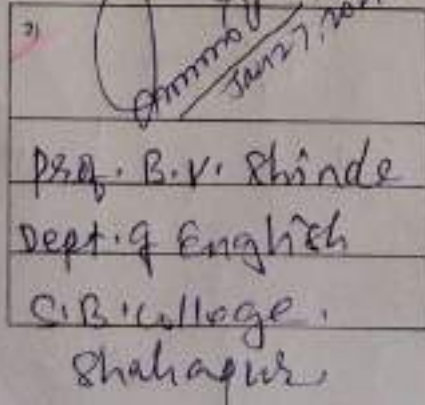 Jan 27, 
Prof. B.V. Shinde
Dept. of English
C.B. College.
Shahapur.